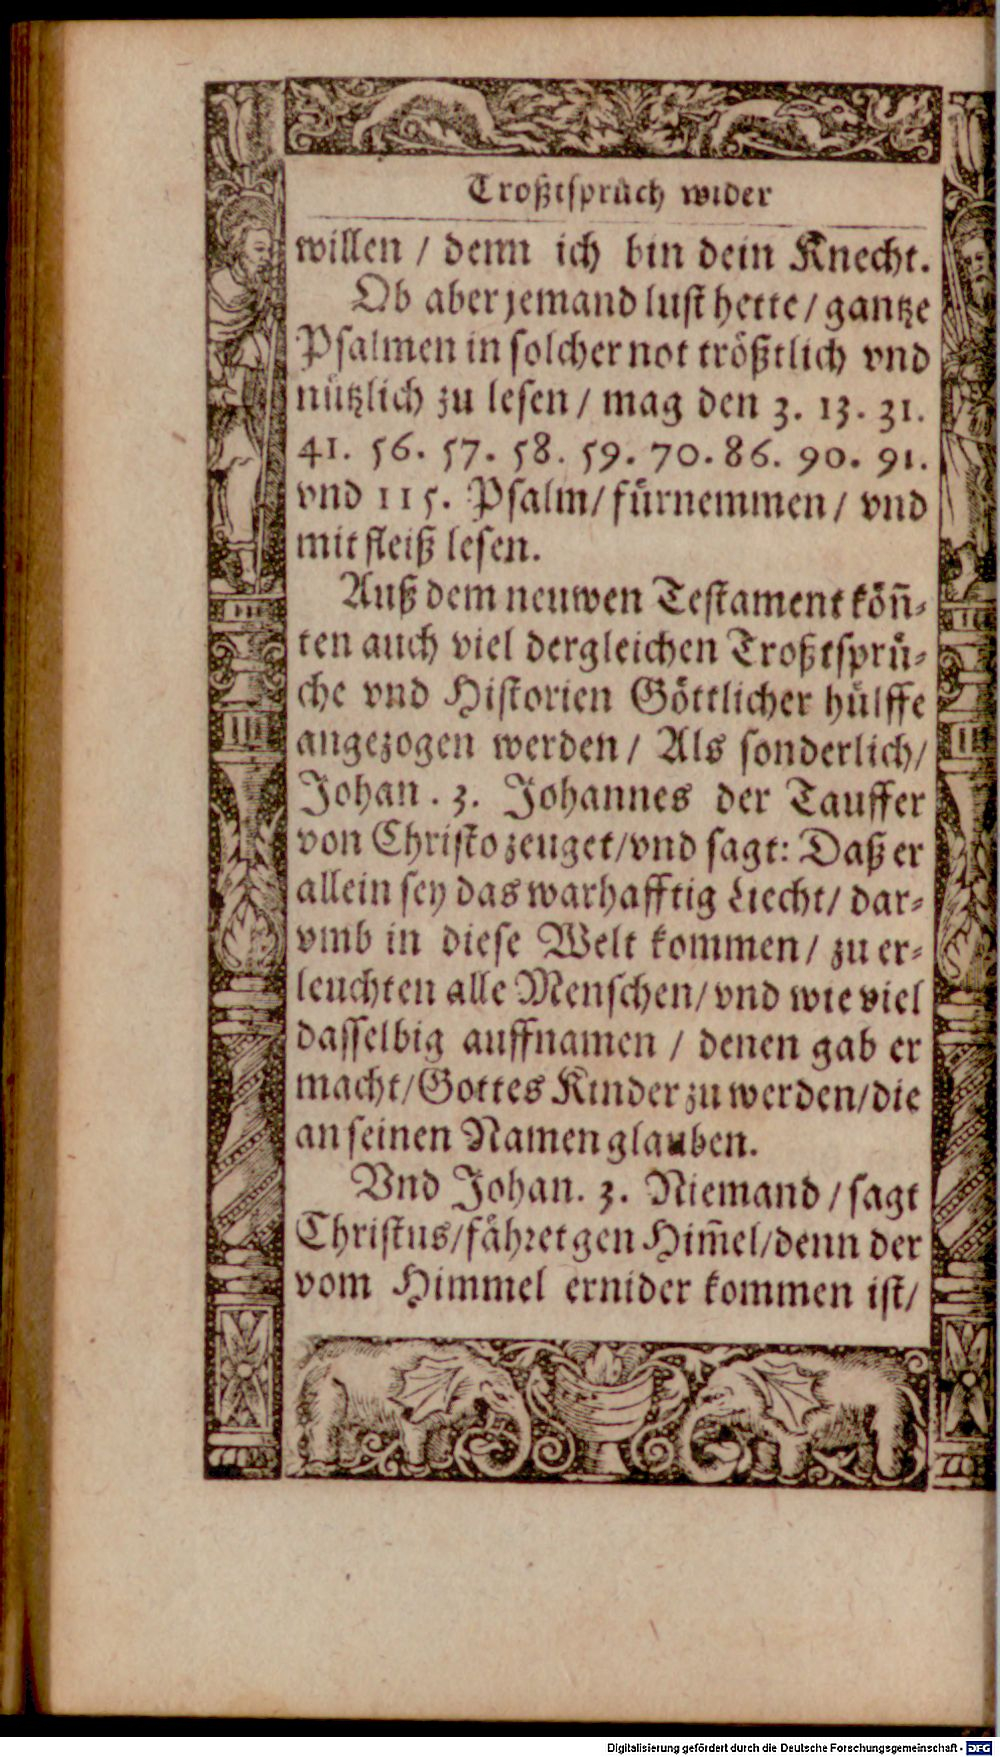 Troßtsprüch wider
willen / denn ich bin dein Knecht.
Ob aber jemand lust hette / gantze
Psalmen in solcher not trößtlich vnd
nützlich zu lesen / mag den 3. 13. 31.
41. 56. 57. 58. 59. 70. 86. 90. 91.
vnd 115. Psalm / fürnemmen / vnd
mit fleiß lesen.
Auß dem neuwen Testament köñ-
ten auch viel dergleichen Troßtsprü-
che vnd Historien Göttlicher hülffe
angezogen werden / Als sonderlich /
Johan. 3. Johannes der Tauffer
von Christo zeuget / vnd sagt: Daß er
allein sey das warhafftig Liecht / dar-
vmb in diese Welt kommen / zu er-
leuchten alle Menschen / vnd wie viel
dasselbig auffnamen / denen gab er
macht / Gottes Kinder zu werden / die
an seinen Namen glauben.
Vnd Johan. 3. Niemand / sagt
Christus / fähret gen Him̃el / denn der
vom Himmel ernider kommen ist /
Digitalisierung gefördert durch die Deutsche Forschungsgemeinschaft - DFG